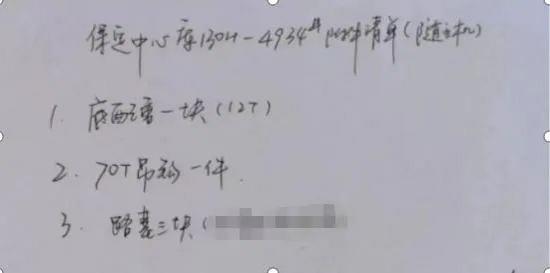 保定中心库130H-4934#附件清单(随主机)
1. 底配重一块(12T)
2. 70T吊钩一件.
3. 路基三块(